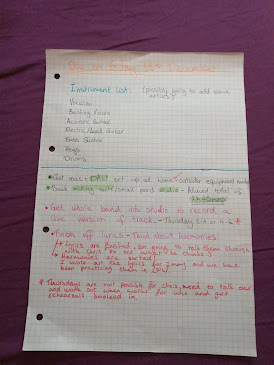 Due on Friday 14th December
Instrument List: (possibly going to add some
artists)
Vocalist
Backing Vocals
Acoustic Guitar
Electric/Lead Guitar
Bass Guitar
Keys
Drums
Get mac + set up at home consider equipment
Book small band studio - Allowed total of
Get whole band into studio to record a
live version of track - Thursday 2-4 or 4-6
Finish off lyrics - Think about harmonies
Lyrics are finished, Im going to talk them through
with Chris to see what he thinks :)
Harmonies are sorted!
I wrote out the lyrics for Jimmy and we have
been practicing them in LPW
Thursdays are not possible for chris, need to talk
and work out when works for who and get
rehearsals booked in.